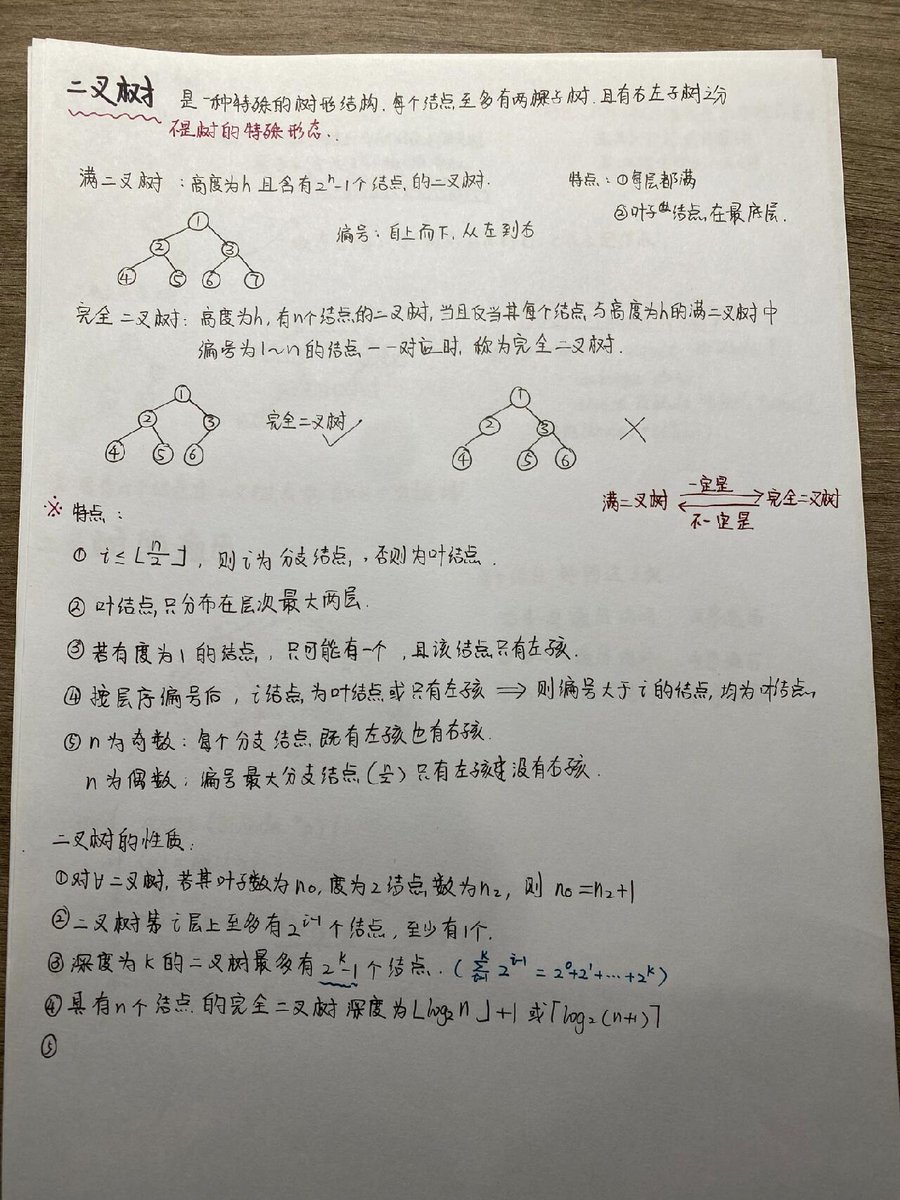 二叉树 是一种特殊的树形结构.每个结点至多有两棵子树.且有右左子树之分
不是树的特殊形态.
满二叉树:高度为h且含有2^h-1个结点的二叉树. 特点:①每层都满
②叶子结点在最底层.
编号:自上而下,从左到右
1
2 3
4 5 6 7
完全二叉树:高度为h,有n个结点的二叉树,当且仅当其每个结点与高度为h的满二叉树中
编号为1~n的结点一一对应时,称为完全二叉树.
1
2 3
4 5 6
完全二叉树 ✓
1
2 3
4 5 6
×
满二叉树 一定是 完全二叉树
不一定是
※ 特点:
① i≤⌊n/2⌋,则i为分支结点,否则为叶结点.
② 叶结点只分布在层次最大两层.
③ 若有度为1的结点,只可能有一个,且该结点只有左孩.
④ 按层序编号后,i结点为叶结点或只有左孩 ⟹ 则编号大于i的结点均为叶结点,
⑤ n为奇数:每个分支结点既有左孩也有右孩.
n为偶数:编号最大分支结点(n/2)只有左孩没有右孩.
二叉树的性质:
①对∀二叉树,若其叶子数为n₀,度为2结点数为n₂,则 n₀=n₂+1
②二叉树第i层上至多有2^(i-1)个结点,至少有1个.
③深度为k的二叉树最多有2^k-1个结点.(∑_{i=1}^{k} 2^(i-1) = 2^0+2^1+…+2^k)
④具有n个结点的完全二叉树深度为⌊log₂n⌋+1或⌈log₂(n+1)⌉
⑤